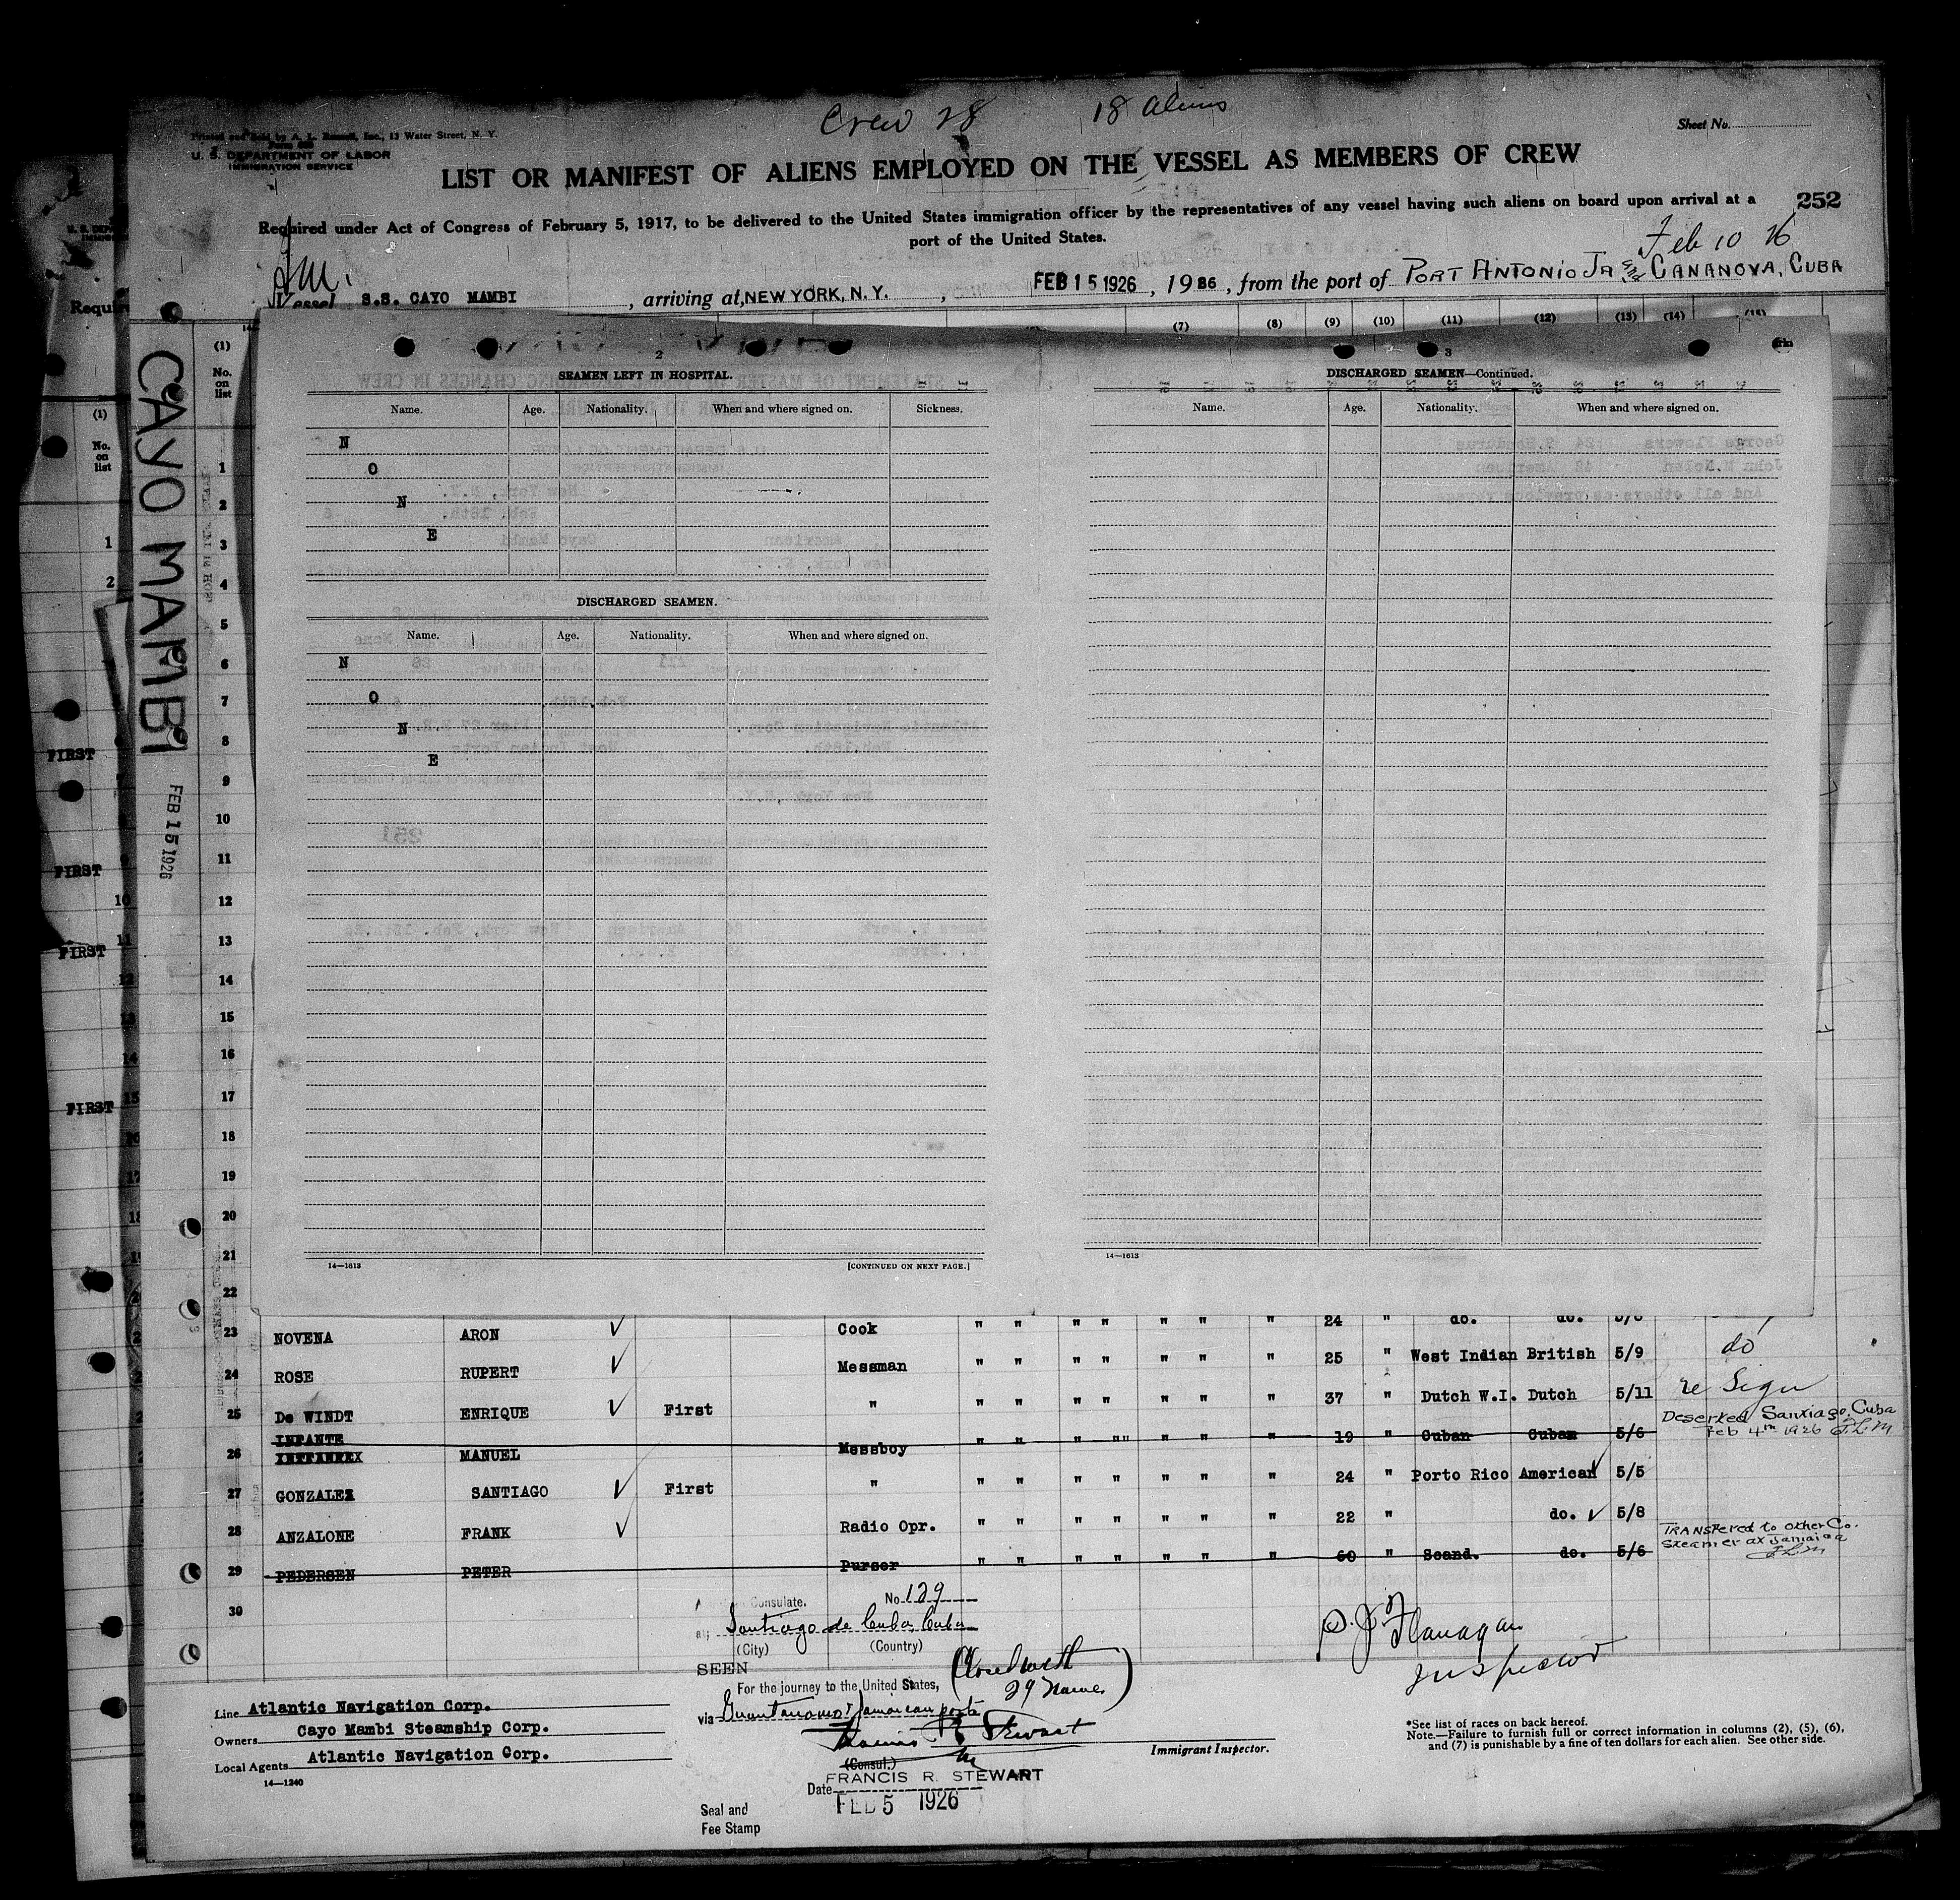 Crew 28 18 Aliens
Printed and Sold by A. L. Russell, Inc., 13 Water Street, N. Y.
U. S. DEPARTMENT OF LABOR
IMMIGRATION SERVICE
Sheet No.
LIST OR MANIFEST OF ALIENS EMPLOYED ON THE VESSEL AS MEMBERS OF CREW
252
Required under Act of Congress of February 5, 1917, to be delivered to the United States immigration officer by the representatives of any vessel having such aliens on board upon arrival at a
port of the United States.
Feb 10 26
Vessel S.S. CAYO MAMBI, arriving at, NEW YORK, N. Y., FEB 15 1926, 1926, from the port of PORT ANTONIO JA and CANANOVA, CUBA
(7) (8) (9) (10) (11) (12) (13) (14) (15)
CAYO MAMBI
FEB 15 1926
(1)
No.
on
list
1
2
3
4
5
6
7
8
9
10
11
12
13
14
15
16
17
18
19
20
21
22
2
SEAMEN LEFT IN HOSPITAL.
Name. Age. Nationality. When and where signed on. Sickness.
N
O
N
E
DISCHARGED SEAMEN.
Name. Age. Nationality. When and where signed on.
N
O
N
E
14—1613 [CONTINUED ON NEXT PAGE.]
3
DISCHARGED SEAMEN—Continued.
Name. Age. Nationality. When and where signed on.
14—1613
23 NOVENA ARON Cook " " " " " " " 24 " do. do.
24 ROSE RUPERT Messman " " " " " " " 25 " West Indian British 5/9 do
25 De WINDT ENRIQUE First " " " " " " " " 37 " Dutch W.I. Dutch 5/11 re Sign
26 INFANTE MANUEL Messboy " " " "" " " " 19 " Cuban Cuban 5/6 Deserted Santiago, Cuba
Feb 4th 1926 J.L.M
27 GONZALEZ SANTIAGO First " " " " " " " " 24 " Porto Rico American 5/5
28 ANZALONE FRANK Radio Opr. " " " " " " " 22 " do. 5/8
29 PEDERSEN PETER Purser " " " " " " " 60 " Scand. do. 5/6 TRANSfered to other Co.
Steamer at Jamaica
J.L.M
30
Consulate. No. 129
at Santiago de Cuba, Cuba
(City) (Country)
SEEN
For the journey to the United States,
29 Names
via Guantanamo & Jamaican ports
Francis R Stewart
(Consul.)
FRANCIS R. STEWART
Date
FEB 5 1926
Seal and
Fee Stamp
Flanagan
Inspector
Immigrant Inspector.
Line Atlantic Navigation Corp.
Owners Cayo Mambi Steamship Corp.
Local Agents Atlantic Navigation Corp.
14—1240
*See list of races on back hereof.
Note.—Failure to furnish full or correct information in columns (2), (5), (6),
and (7) is punishable by a fine of ten dollars for each alien. See other side.
(1)
No.
on
list
1
2
FIRST
FIRST
FIRST
FIRST